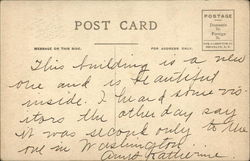 POST CARD
POSTAGE
Domestic
1c
Foreign
2c
MESSAGE ON THIS SIDE.
FOR ADDRESS ONLY.
This building is a new
one and is beautiful
inside. I heard some vis-
itors the other day say
it was second only to the
one in Washington.
Aunt Katherine